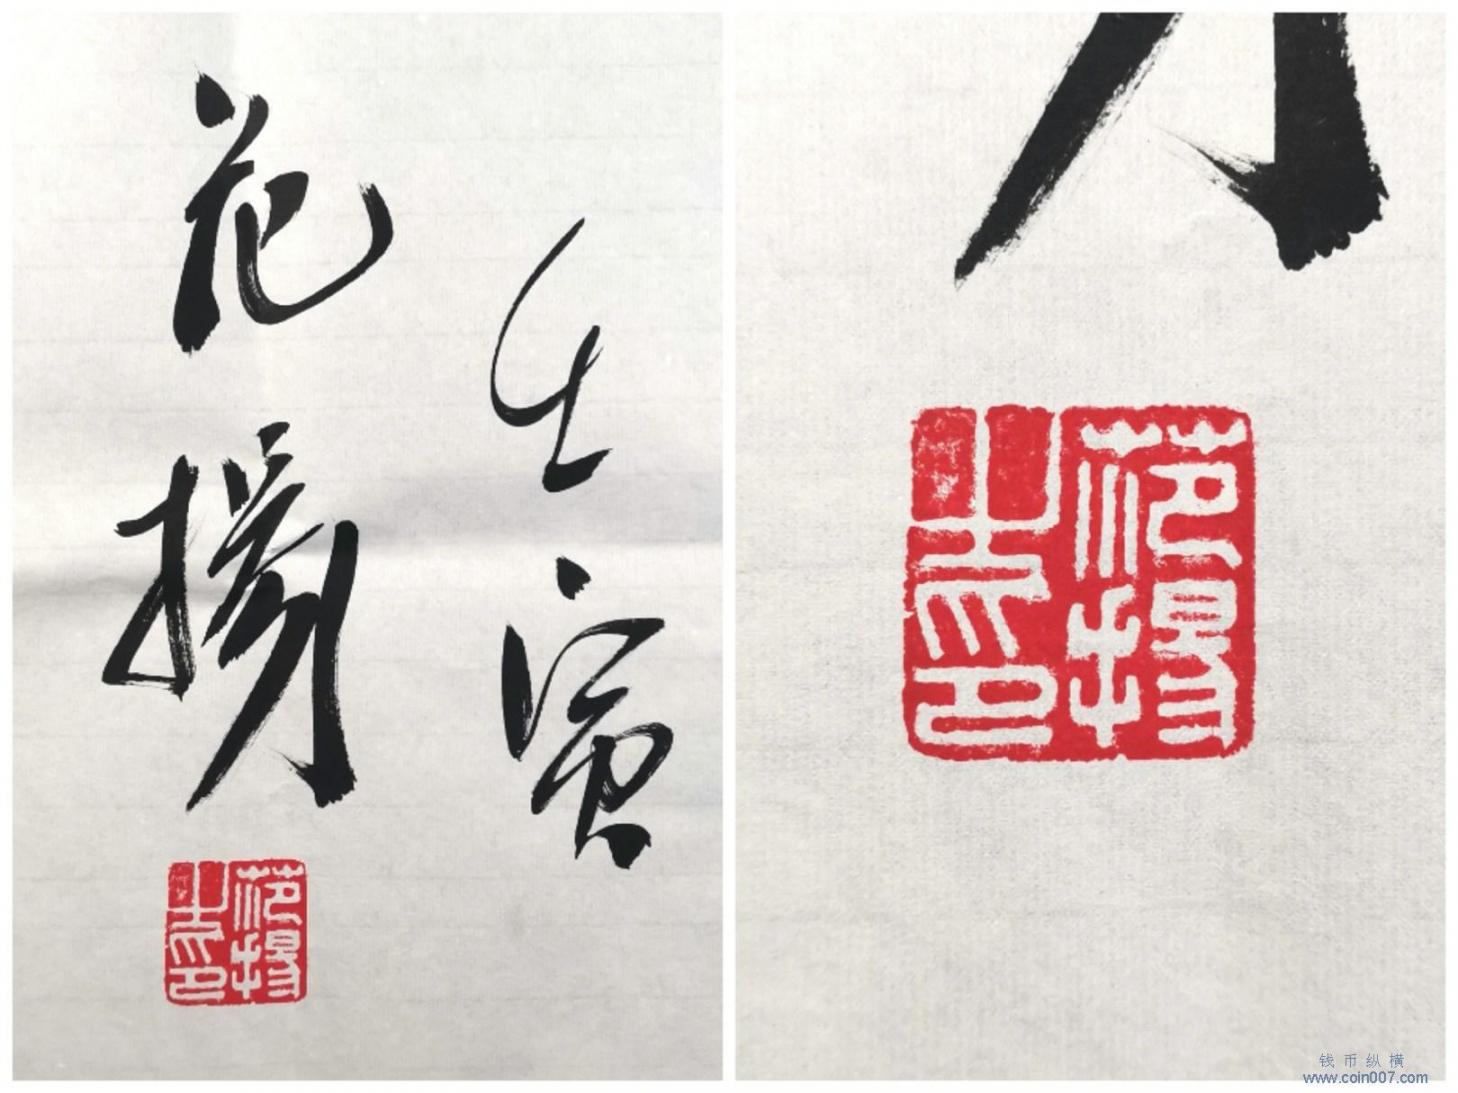 壬寅
范揚
范揚之印
范揚之印
钱币纵横
www.coin007.com